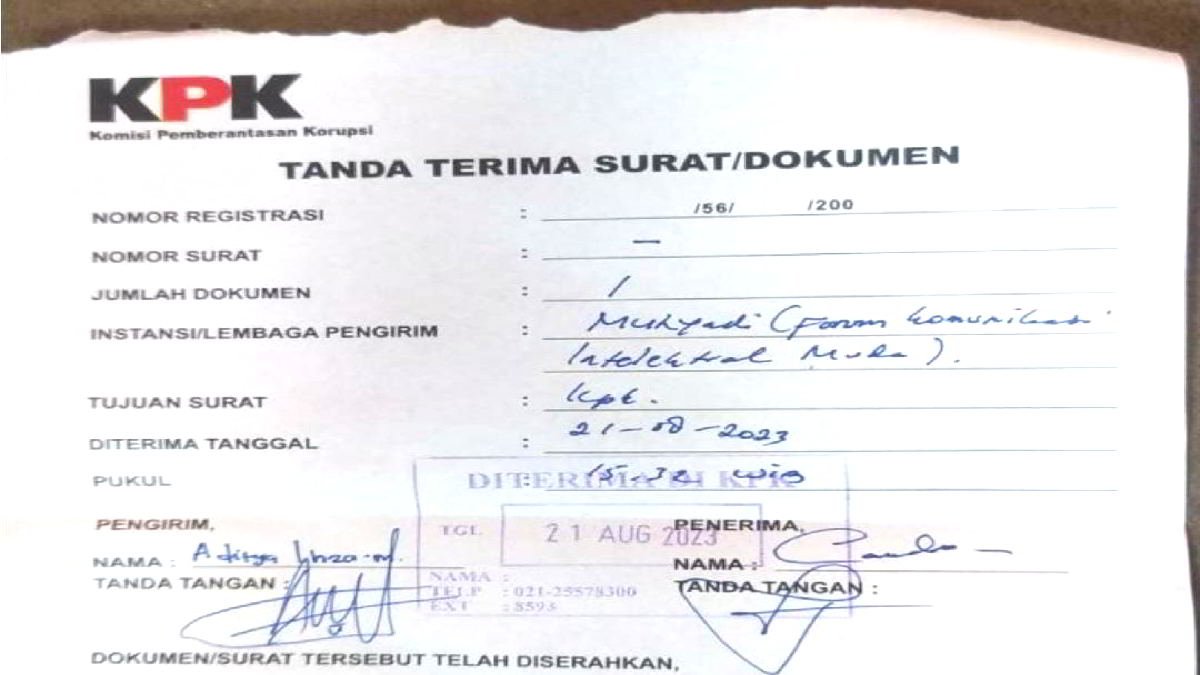 KPK
Komisi Pemberantasan Korupsi
TANDA TERIMA SURAT/DOKUMEN
NOMOR REGISTRASI : /56/ /200
NOMOR SURAT : —
JUMLAH DOKUMEN : 1
INSTANSI/LEMBAGA PENGIRIM : Muhyadi (Forum Komunikasi
Intelektual Muda).
TUJUAN SURAT : Kpk.
DITERIMA TANGGAL : 21-08-2023
PUKUL : 15.32 wib
DITERIMA DI KPK
TGL 21 AUG 2023
NAMA :
TELP : 021-25578300
EXT : 8593
PENGIRIM,
NAMA : Aditya
TANDA TANGAN :
PENERIMA,
NAMA :
TANDA TANGAN :
DOKUMEN/SURAT TERSEBUT TELAH DISERAHKAN,